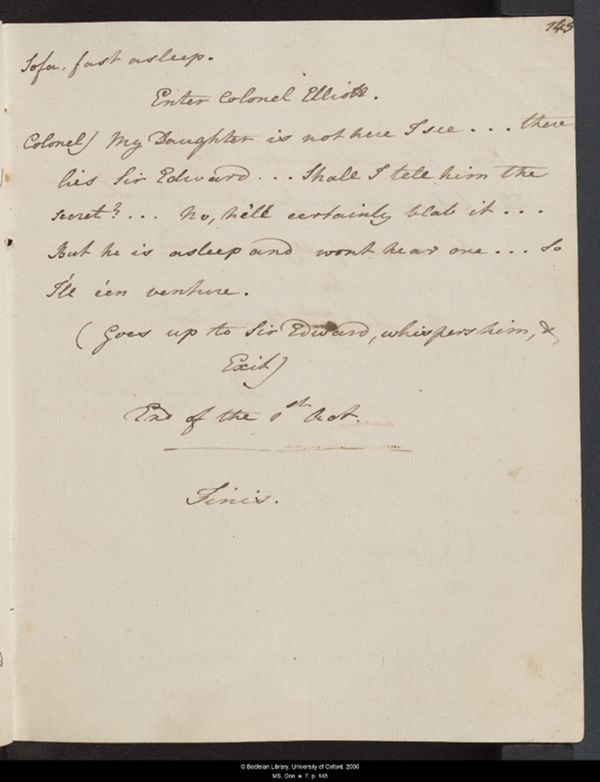 145
Sofa, fast asleep.
Enter Colonel Elliott.
Colonel) My Daughter is not here I see . . . there
lies Sir Edward . . . Shall I tell him the
secret? . . . No, he'll certainly blab it . . .
But he is asleep and wont hear me . . . So
I'll e'en venture.
(Goes up to Sir Edward, whispers him, &
Exit)
End of the 1st Act.
Finis.
© Bodleian Library, University of Oxford, 2006
MS. Don. e. 7, p. 145